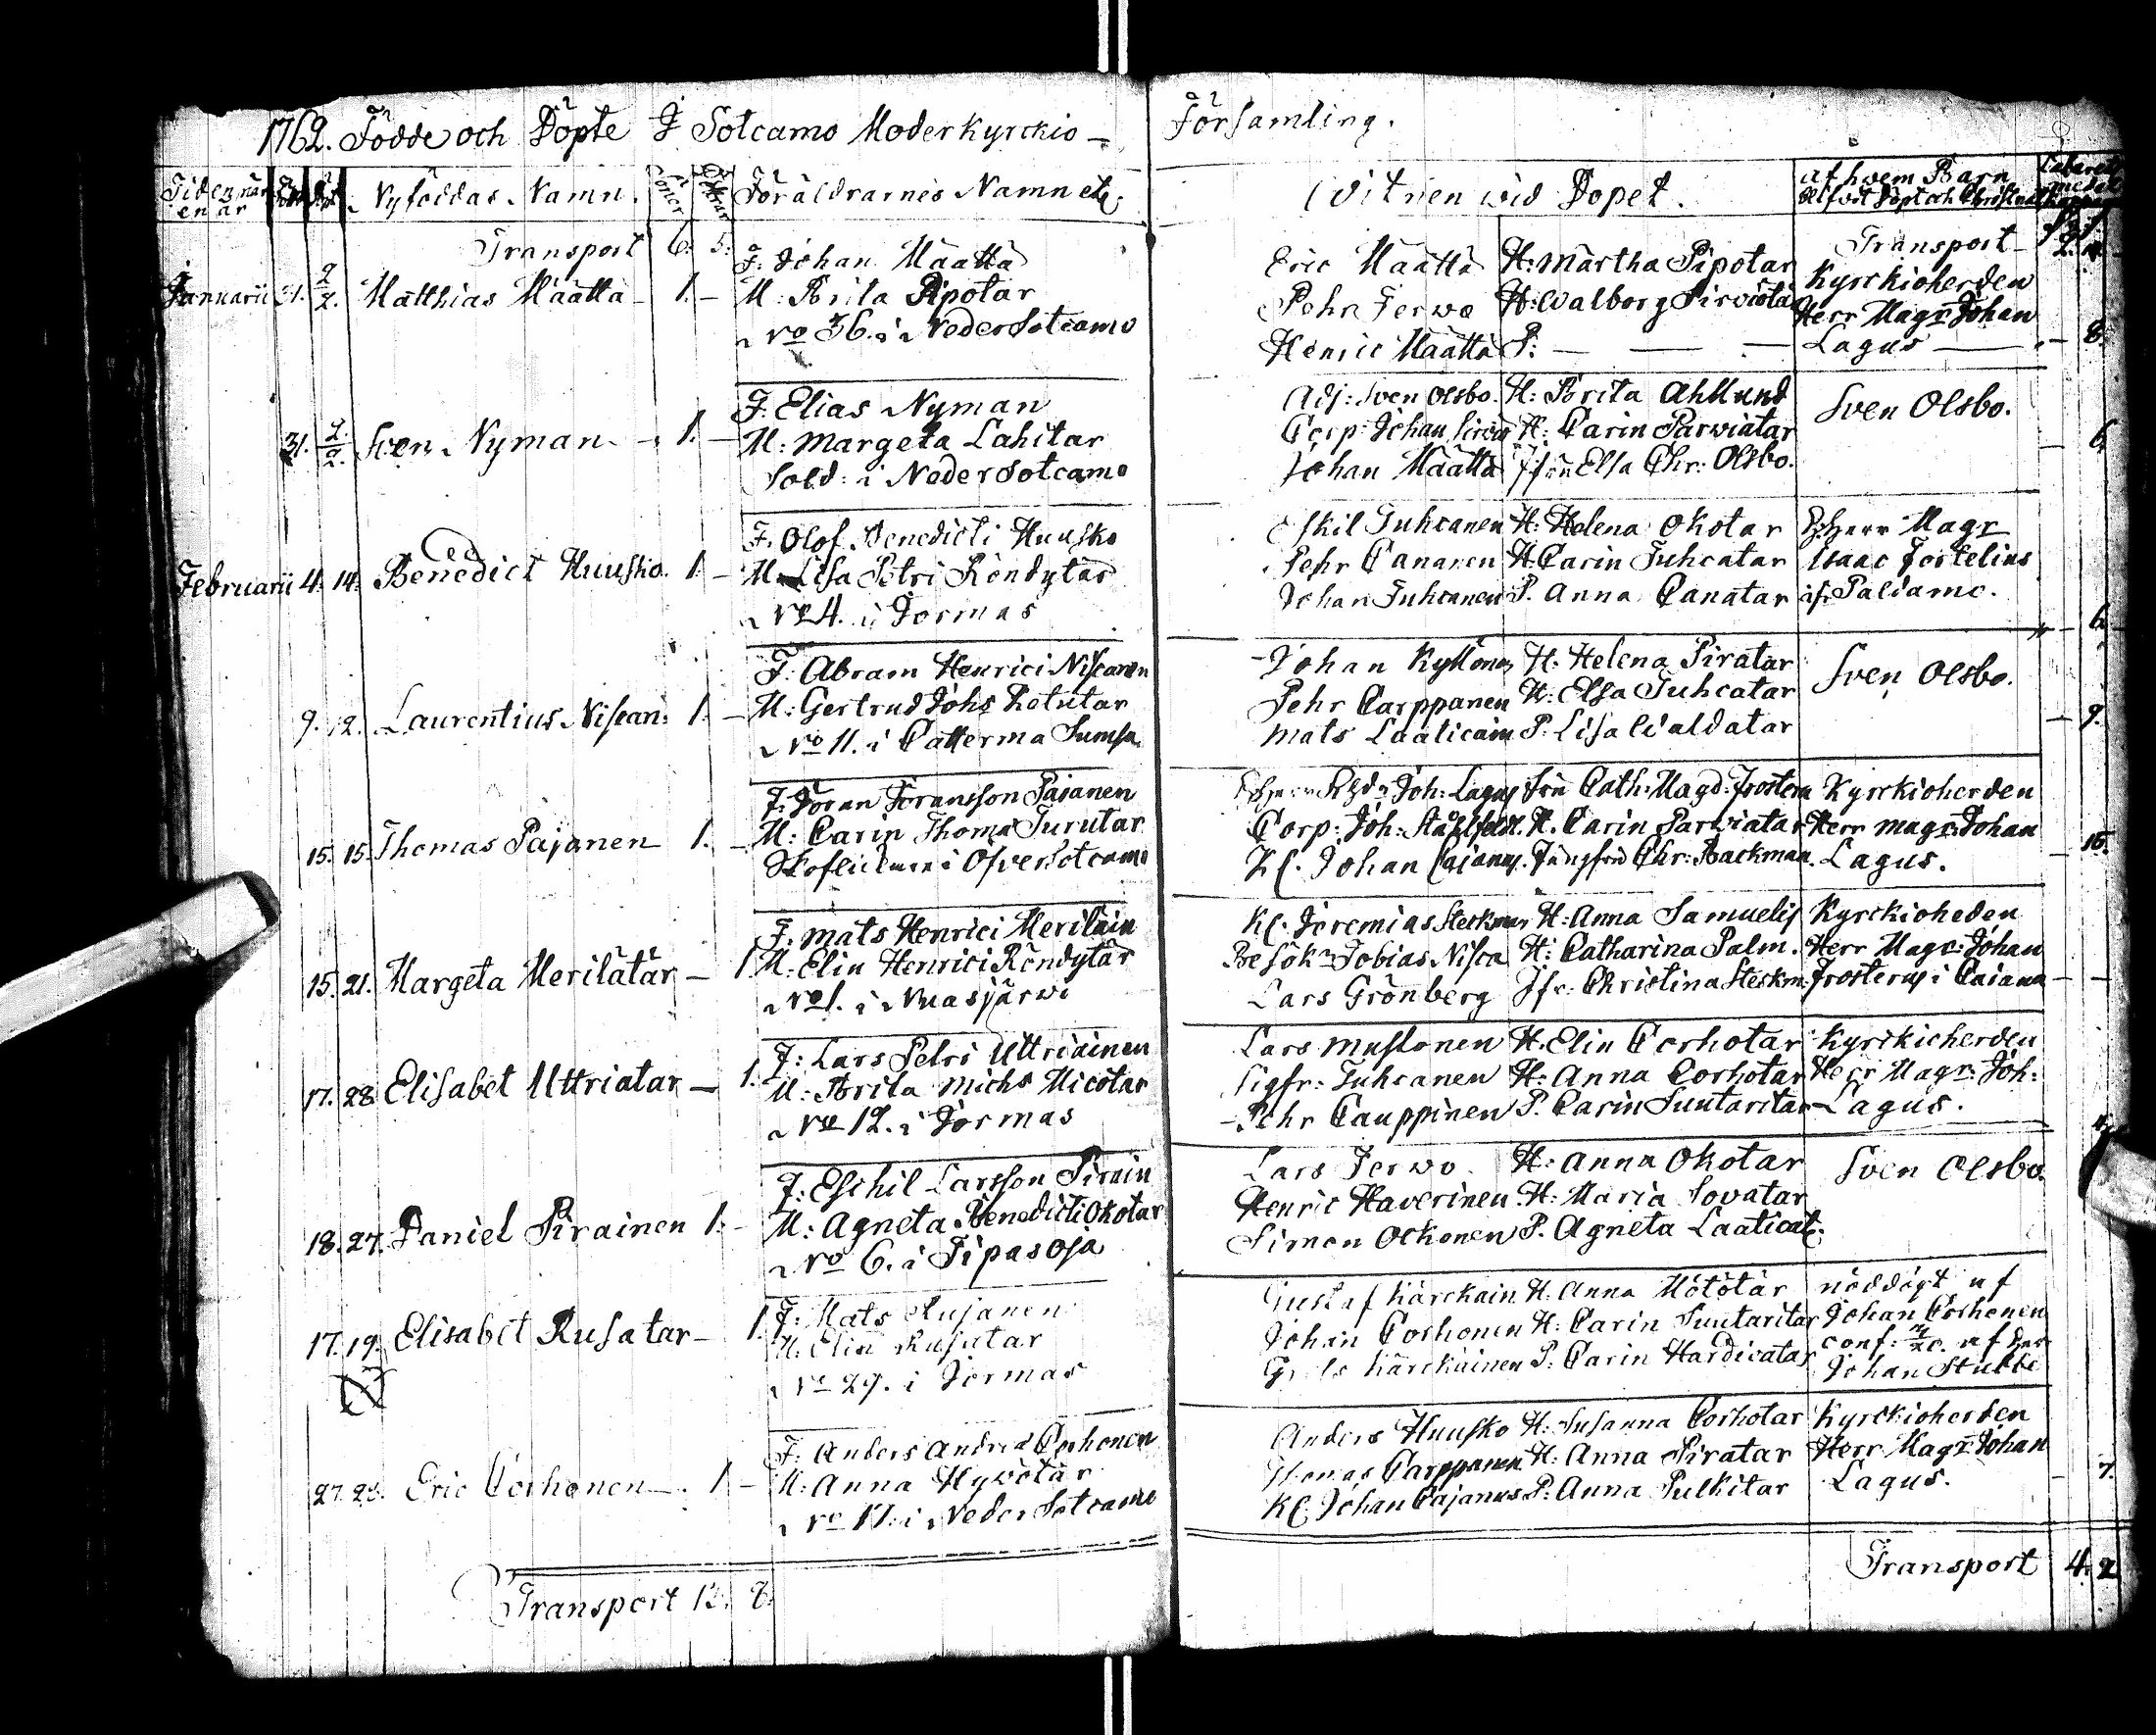 1762. Födde och Döpte I Sotcamo Moderkyrckio-
Församling.
Nyföddas Namn. Söner Föräldrarnes Namn etc.
Witnen wid Dopet. af hwem Barn
Transport 6. 5.
Januarii 31. 2/2. Matthias Määttä 1. –
F: Johan Määttä
M: Brita Pipotar
No 36. i NederSotcamo
Eric Määttä H: Martha Pipotar
Pehr Terwo H: Walborg
Henric Määttä P: — — —
Transport
Kyrckioherden
Herr Magr Johan
Lagus — 8.
31. 2/2. Sven Nyman – 1. –
F: Elias Nyman
M: Margeta Lahitar
Sold: i NederSotcamo
Adj: Sven Olsbo. H: Brita Ahllund
Corp: Johan H: Carin Parwiatar
Johan Määttä Jfru Elsa Chr: Olsbo.
Sven Olsbo.
6.
Februarii 4. 14. Benedict Huusko. 1. –
F: Olof Benedicti Huusko
M: Lisa Petri Röndytär
No 4. i Jormas
Eskil Juhcanen H: Helena Okotar
Pehr Cananen H: Carin Juhcatar
Johan Juhcanen P. Anna Canatar
Herr Magr
Isaac Fortelius
af Paldamo.
6.
9. 12. Laurentius Niscan: 1. –
F: Abram Henrici Niscanen
M: Gertrud Johs Retutar
No 11. i Catterma Sumsa
Johan Kyllönen H: Helena Piratar
Pehr Carppanen H: Elsa Juhcatar
Mats Laaticain P: Lisa Waldatar
Sven Olsbo.
9.
15. 15. Thomas Pajanen 1. –
F: Jöran Jöransson Pajanen
M: Carin Thomæ Turutar
i ÖfverSotcamo
Joh: Lagus Fru Cath: Magd: Frosterus
Corp: Joh: Stålfeldt. H. Carin Parwiatar
Kl. Johan Cajanus. Jungfru Chr: Backman.
Kyrckioherden
Herr Magr: Johan
Lagus.
15. 21. Margeta Merilätär – 1.
F: Mats Henrici Meriläin
M: Elin Henrici Röndytär
No 1. i Nuasjärwi
Kl. Jeremias Steckman H: Anna Samuelis
Besökr Tobias Nisca H: Catharina Palm.
Lars Grönberg Jfr: Christina Steckm.
Kyrckioheden
Herr Magr: Johan
Frosterus i Cajana – –
17. 28. Elisabet Uttriatar – 1.
F: Lars Petri Uttriainen
M: Brita Michs Micotar
No 12. i Jormas
Lars Mustonen H. Elin Corhotar
Sigfr: Juhcanen H: Anna Corhotar
Pehr Cauppinen P. Carin Suutaritar
Kyrckioherden
Herr Magr: Joh:
Lagus.
18. 27. Daniel Pirainen 1. –
F: Eschil Larsson Pirain
M: Agneta Benedicti Okotar
No 6. i Tipasoja
Lars Terwo. H: Anna Okotar
Henric Haverinen H: Maria Sovatar
Simon Ockonen P. Agneta Laaticat.
Sven Olsbo.
17. 19. Elisabet Rusatar – 1.
F: Mats Rusanen
M: Elin Rusatar
No 29. i Jormas
Gustaf Kärckäin H. Anna Mötötär
Johan Corhonen H: Carin Suutaritar
Kärckäinen P: Carin Hardicatar
nöddöpt af
Johan Corhonen
conf: af Herr
Johan Stubbe
27. 28. Eric Corhonen – 1 –
F: Anders Andreæ Corhonen
M: Anna Hyvötär
No 17. i NederSotcamo
Anders Huusko H: Susanna Corhotar
Thomas Carppanen H: Anna Piratar
Kl: Johan Cajanus P: Anna Pulkitar
Kyrckioherden
Herr Magr: Johan
Lagus.
7.
Transport 12. 8.
Transport 4. 2